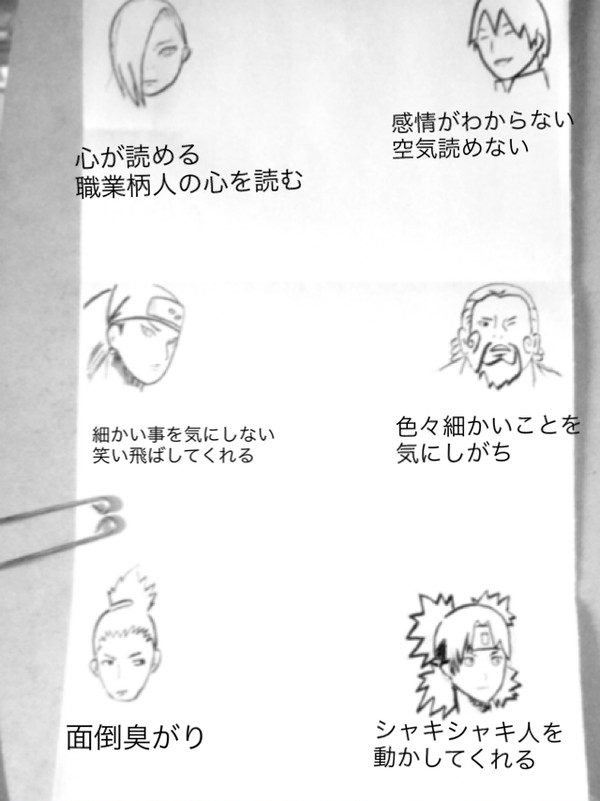 心が読める
職業柄人の心を読む
感情がわからない
空気読めない
細かい事を気にしない
笑い飛ばしてくれる
色々細かいことを
気にしがち
面倒臭がり
シャキシャキ人を
動かしてくれる